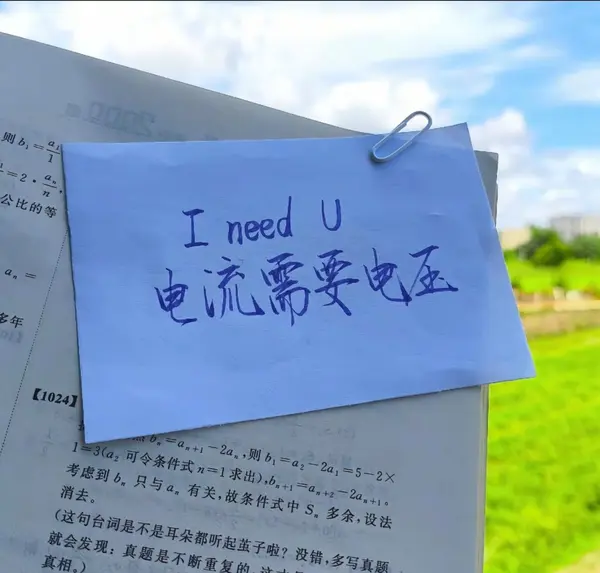 则b₁=a₁/1
=2·aₙ/n,
公比的等
aₙ=
多年
I need U
电流需要电压
【1024】
bₙ=aₙ₊₁-2aₙ,则b₁=a₂-2a₁=5-2×
1=3(a₂可令条件式n=1求出),bₙ₊₁=aₙ₊₂-2aₙ₊₁。
考虑到bₙ只与aₙ有关,故条件式中Sₙ多余,设法
消去。
(这句台词是不是耳朵都听起茧子啦?没错,多写真题
就会发现:真题是不断重复的,这
真相。)